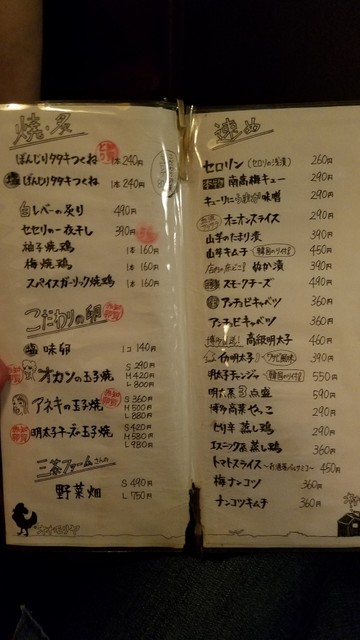 焼・炙
ぼんじりタタキつくね 1本240円
塩 ぼんじりタタキつくね 1本240円
白レバーの炙り 490円
セセリの一夜干し 390円
柚子焼鶏 1本 160円
梅焼鶏 1本 160円
スパイスガーリック焼鶏 1本 160円
こだわりの卵
味卵 1コ 140円
オカンの玉子焼 S 290円
M 420円
L 800円
アネキの玉子焼 S 360円
M 500円
L 880円
明太子チーズの玉子焼 S 420円
M 580円
L 980円
三茶ファームさんの
野菜畑 S 490円
L 750円
速め
セロリン (セロリの浅漬) 260円
南高梅キュー 290円
キューリに 味噌 290円
オニオンスライス 290円
山芋のたまり漬 390円
山芋キムチ 韓国のり付 450円
ぬか漬 390円
スモークチーズ 490円
アンチョビキャベツ 360円
アンチョビキャベツ 360円
高級明太子 460円
明太子 390円
明太子チャンジャ 韓国のり付 550円
点盛 590円
博多高菜やっこ 290円
セリキ蒸し鶏 290円
エスニック系蒸し鶏 360円
トマトスライス 450円
梅ナンコツ 360円
ナンコツキムチ 360円